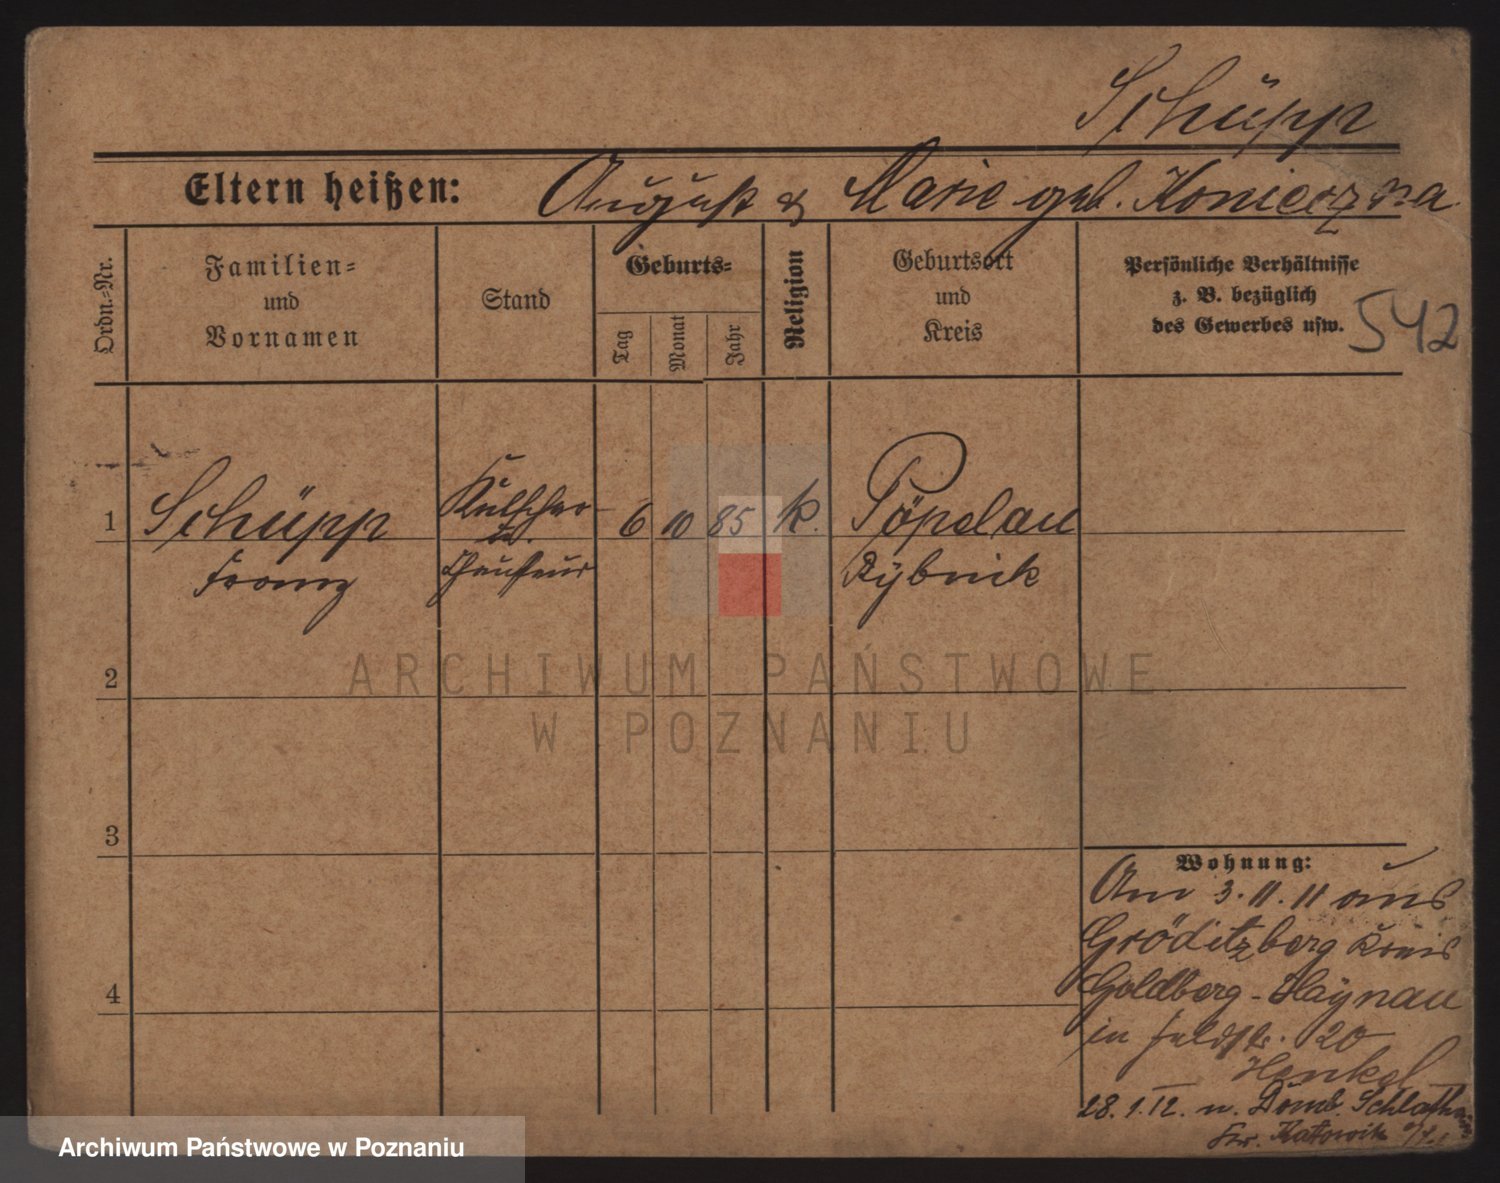 Schüpp
Eltern heißen: August & Marie geb. Konieczna
Ordn.=Nr.
Familien=
und
Vornamen
Stand
Geburts=
Tag
Monat
Jahr
Religion
Geburtsort
und
Kreis
Persönliche Verhältnisse
z. B. bezüglich
des Gewerbes usw.
542
1 Schüpp Kutscher 6 10 85 k. Pöpelau
u.
Franz Chauffeur Rybnik
2
3
4
Wohnung:
Am 3.11.11 aus
Gröditzberg Kreis
Goldberg-Haynau
in Feldstr. 20
Henkel
28.1.12. n. Domb.
Kr. Katowitz
ARCHIWUM PAŃSTWOWE
W POZNANIU
Archiwum Państwowe w Poznaniu